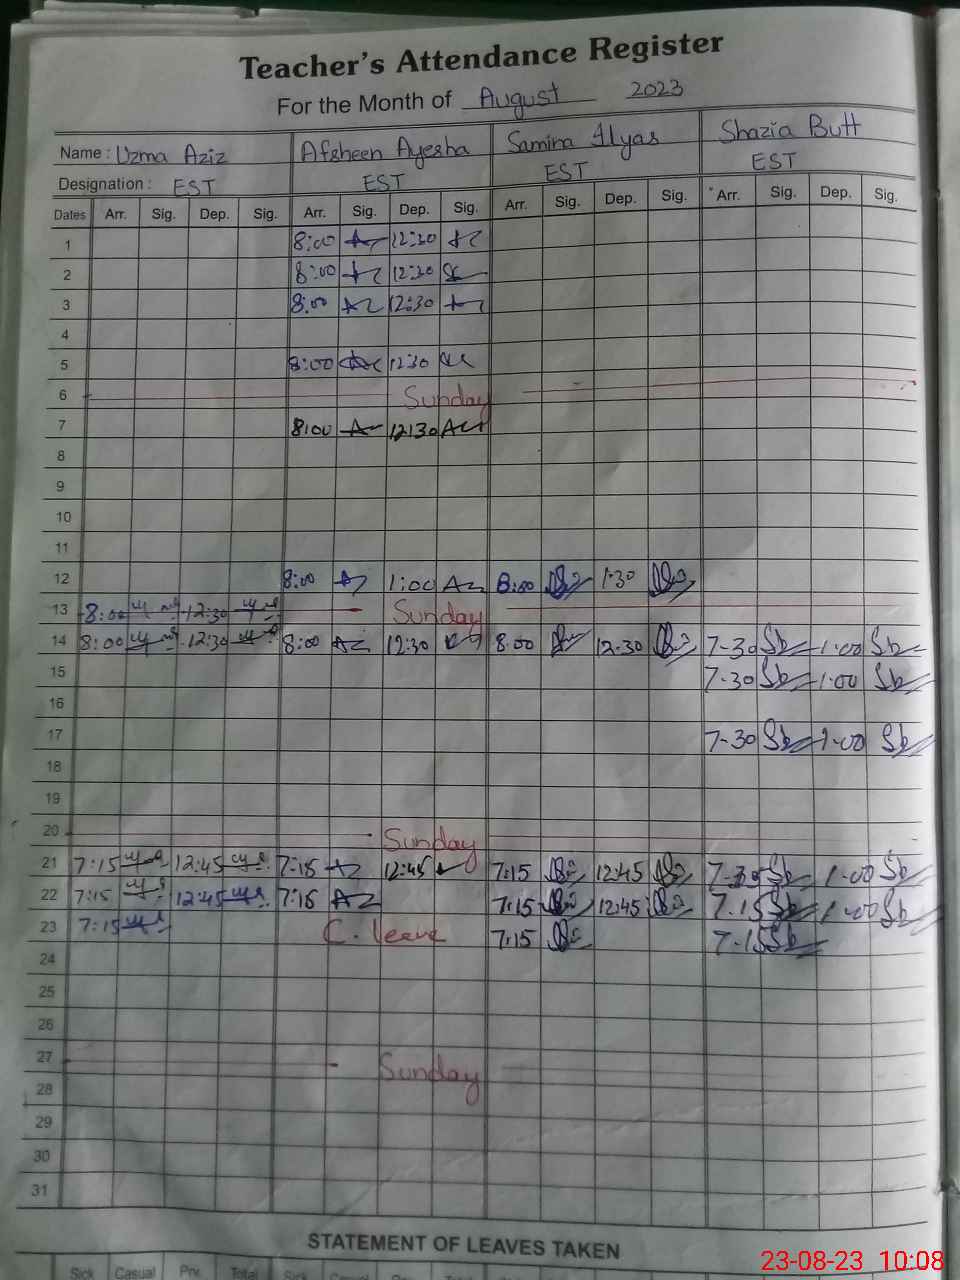 Teacher's Attendance Register
For the Month of August 2023
Name : Uzma Aziz Afsheen Ayesha Samina Ilyas Shazia Butt
Designation : EST EST EST EST
Dates Arr. Sig. Dep. Sig. Arr. Sig. Dep. Sig. Arr. Sig. Dep. Sig. Arr. Sig. Dep. Sig.
1 8:00 12:30
2 8:00 12:30
3 8:00 12:30
4
5 8:00 12:30
6 Sunday
7 8:00 12:30
8
9
10
11
12 8:00 1:00 8:00 1:30
13 8:00 12:30 Sunday
14 8:00 12:30 8:00 12:30 8:00 12:30 7-30 Sb 1:00 Sb
15 7-30 Sb 1:00 Sb
16
17 7-30 Sb 1:00 Sb
18
19
20 Sunday
21 7:15 12:45 7:15 12:45 7:15 12:45 7-30 Sb 1:00 Sb
22 7:15 12:45 7:15 7:15 12:45 7.15 Sb 1:00 Sb
23 7:15 C. leave 7:15 7.15 Sb
24
25
26
27 Sunday
28
29
30
31
STATEMENT OF LEAVES TAKEN
Sick Casual Prv. Total Sick
23-08-23 10:08